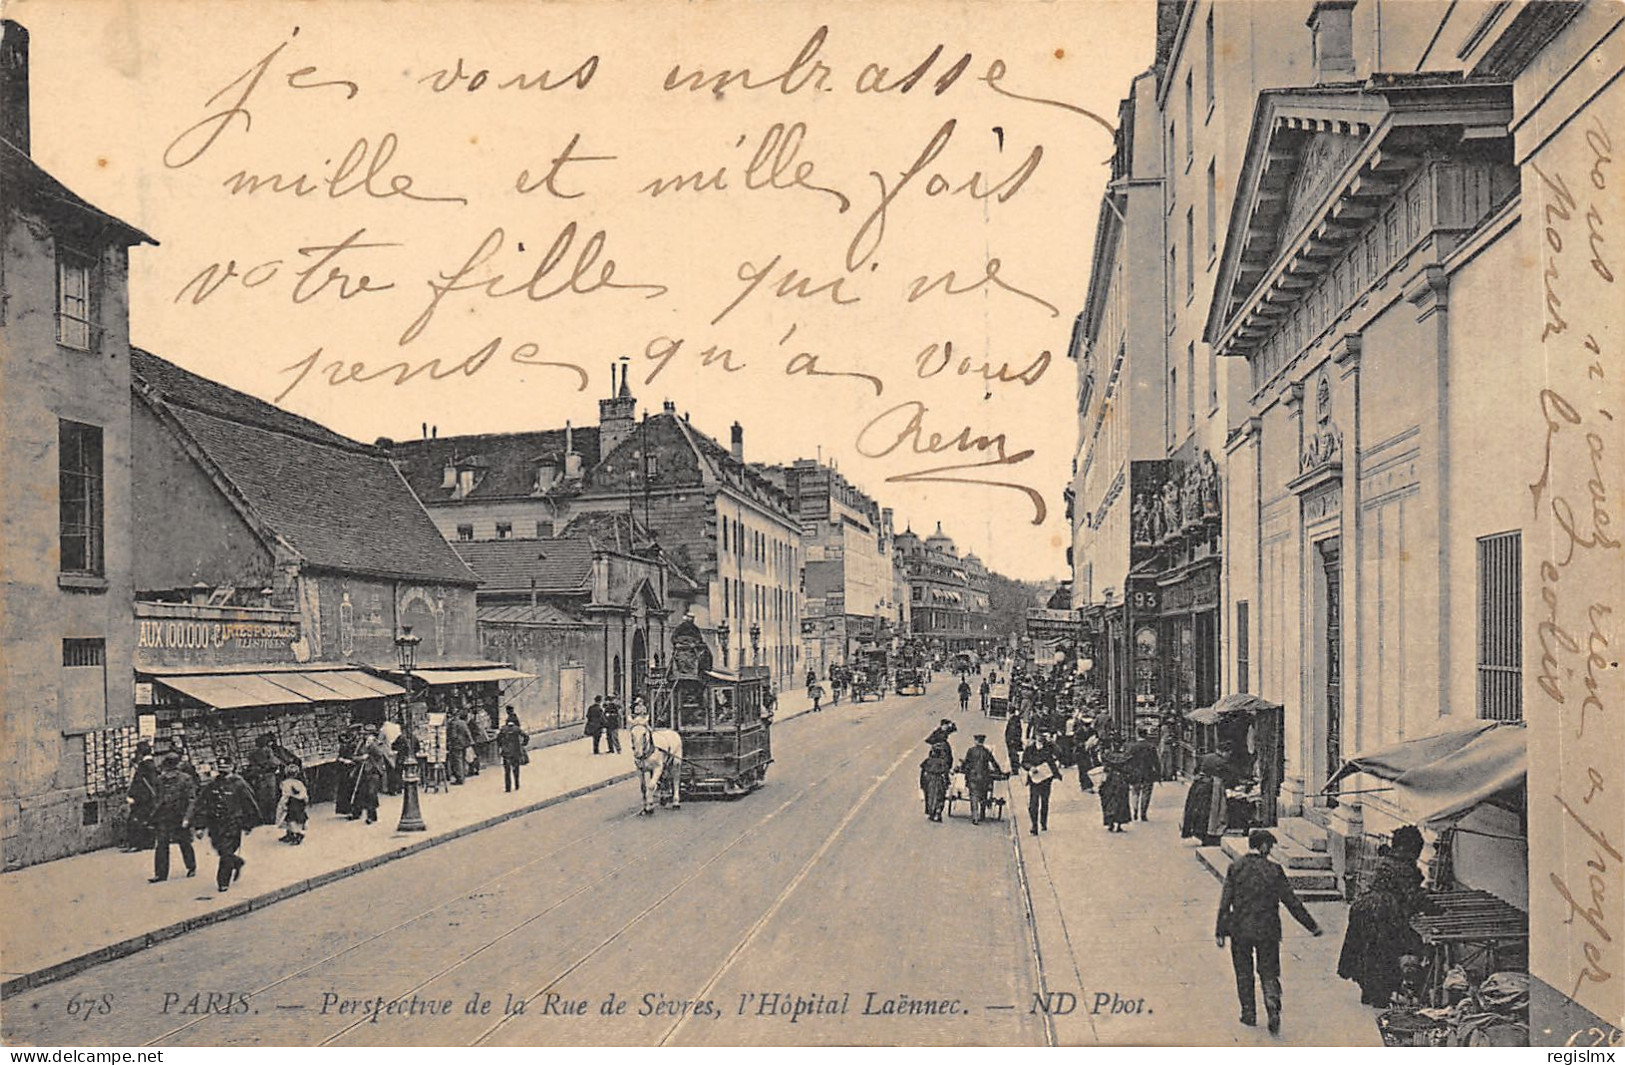 je vous embrasse
mille et mille fois
votre fille qui ne
pense qu'à vous
vous n'avez rien a payer
pour le colis
AUX 100.000 CARTES POSTALES
ILLUSTRÉES
93
678 PARIS. — Perspective de la Rue de Sèvres, l'Hôpital Laënnec. — ND Phot.
regislmx